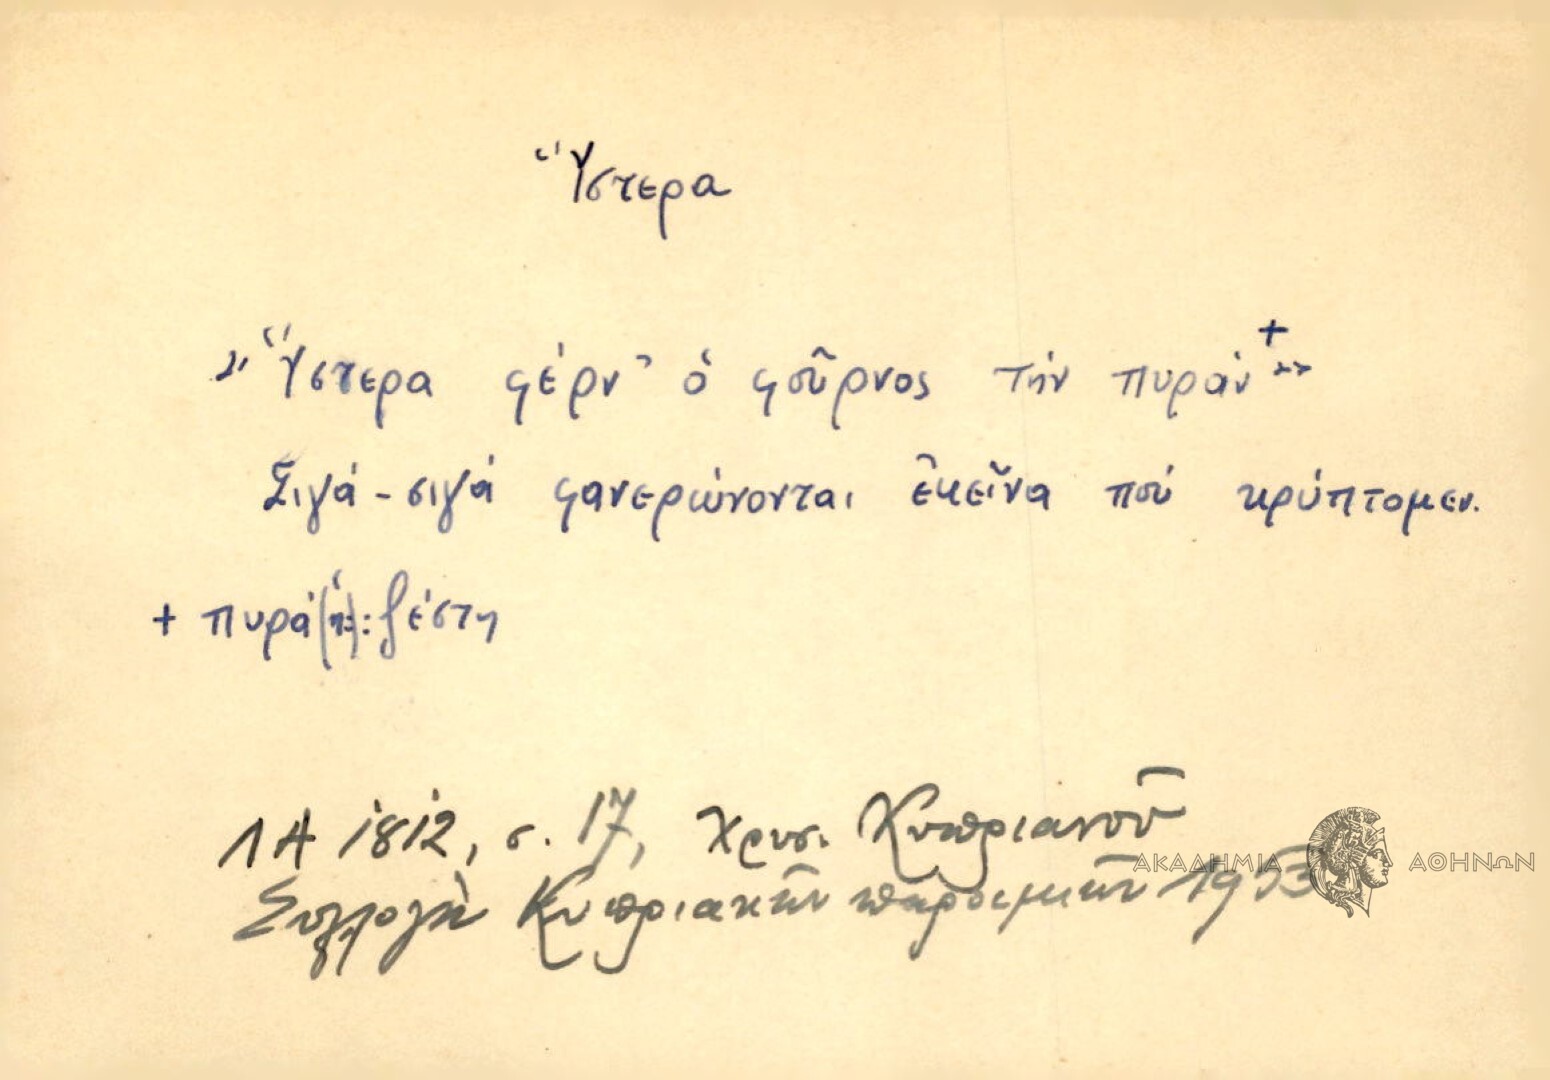 Ὕστερα
"Ὕστερα φέρν' ὁ φοῦρνος τήν πυράν"+
Σιγά-σιγά φανερώνονται ἐκεῖνα πού κρύπτομεν.
+ πυρά(ἡ): ζέστη
ΛΑ 1812, σ. 17, Χρυσ. Κυπριανοῦ
Συλλογὴ Κυπριακῶν παροιμιῶν 1953
ΑΚΑΔΗΜΙΑ ΑΘΗΝΩΝ